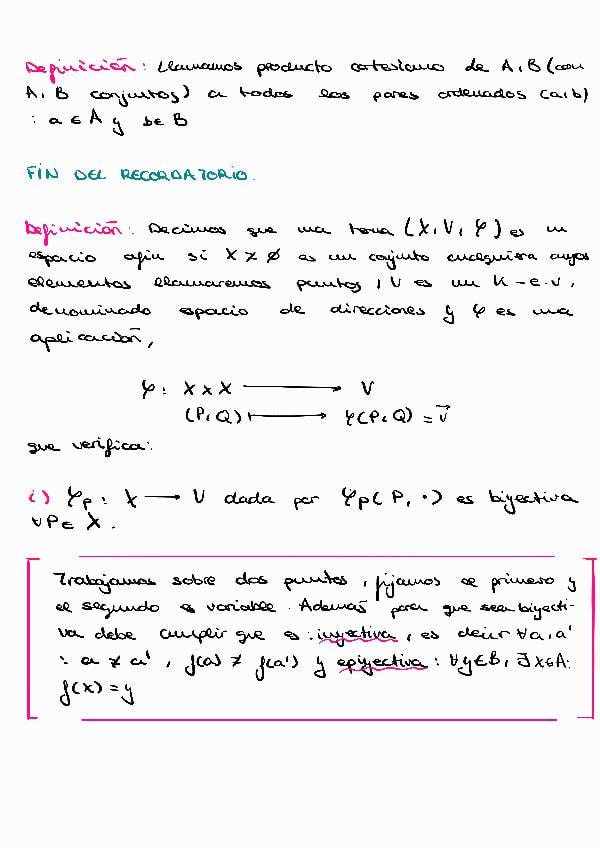 Definición: Llamamos producto cartesiano de A, B (con
A, B conjuntos) a todos los pares ordenados (a,b)
: a ∈ A y b ∈ B
FIN DEL RECORDATORIO.
Definición: Decimos que una terna (X, V, φ) es un
espacio afín si X ≠ ∅ es un conjunto cualquiera cuyos
elementos llamaremos puntos, V es un K-e.v,
denominado espacio de direcciones y φ es una
aplicación,
φ: X x X ⟶ V
(P,Q) ⟼ φ(P,Q) = v⃗
que verifica:
i) φp: X ⟶ V dada por φp(P, ·) es biyectiva
∀P ∈ X.
Trabajamos sobre dos puntos, fijamos el primero y
el segundo es variable. Además para que sea biyecti-
va debe cumplir que es: inyectiva, es decir ∀a,a'
: a ≠ a', f(a) ≠ f(a') y epiyectiva: ∀y∈B, ∃x∈A:
f(x) = y